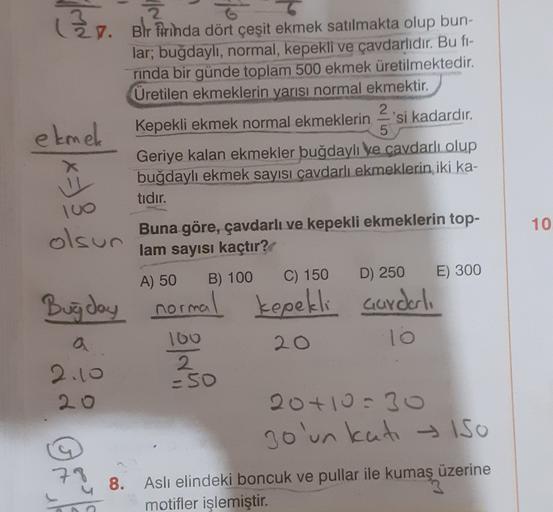 7. Bir fırında dört çeşit ekmek satılmakta olup bun-
lar; buğdaylı, normal, kepekli ve çavdarlıdır. Bu fı-
rında bir günde toplam 500 ekmek üretilmektedir.
Üretilen ekmeklerin yarısı normal ekmektir.
Kepekli ekmek normal ekmeklerin 2/5 'si kadardır.
Geriye kalan ekmekler buğdaylı ve çavdarlı olup
buğdaylı ekmek sayısı çavdarlı ekmeklerin iki ka-
tıdır.
Buna göre, çavdarlı ve kepekli ekmeklerin top-
lam sayısı kaçtır?
A) 50 B) 100 C) 150 D) 250 E) 300
ekmek
x
100
olsun
Buğday normal kepekli Çavdarlı
a 100/2 20 10
2.10 = 50
20
20+10=30
30'un katı → 150
4
78
4
10
8. Aslı elindeki boncuk ve pullar ile kumaş üzerine
motifler işlemiştir.
3